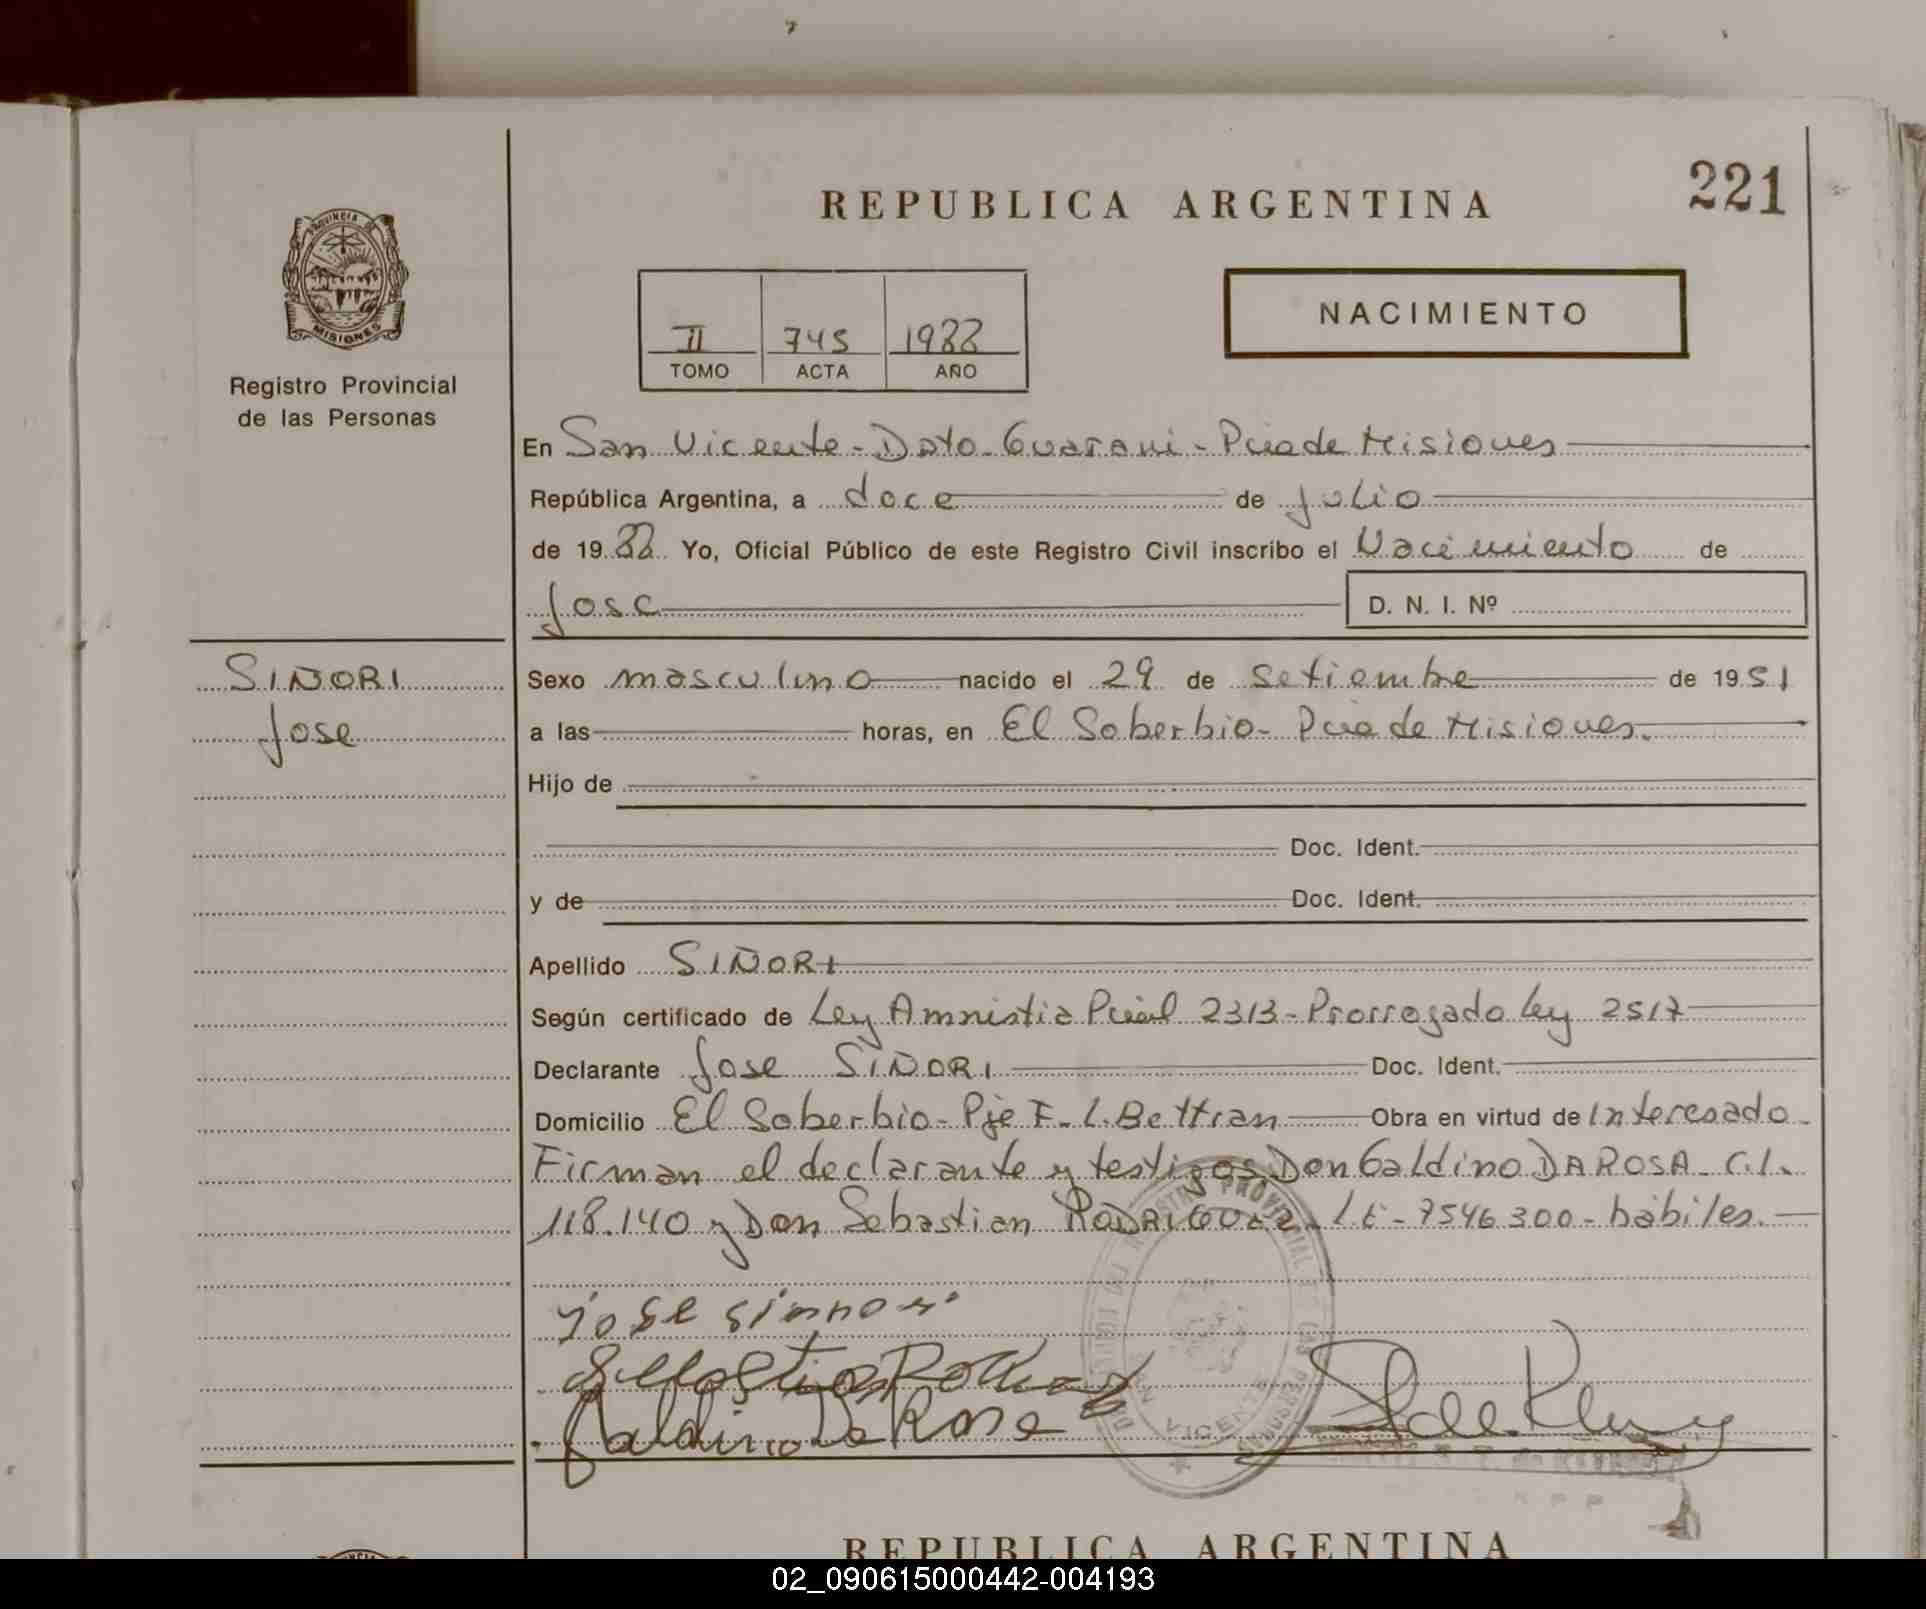 REPUBLICA ARGENTINA
221
PROVINCIA DE
MISIONES
Registro Provincial
de las Personas
II 745 1988
TOMO ACTA AÑO
NACIMIENTO
En San Vicente - Dpto. Guarani - Pcia de Misiones
República Argentina, a doce de Julio
de 19 88 Yo, Oficial Público de este Registro Civil inscribo el Nacimiento de
Jose D. N. I. Nº
SIÑORI
Jose
Sexo masculino nacido el 29 de Setiembre de 19 51
a las horas, en El Soberbio - Pcia de Misiones.
Hijo de
Doc. Ident.
y de Doc. Ident.
Apellido SIÑORI
Según certificado de Ley Amnistia Pcial 2313 - Prorrogado Ley 2517
Declarante Jose SIÑORI Doc. Ident.
Domicilio El Soberbio - Pje F. L. Beltran Obra en virtud de Interesado -
Firman el declarante y testigos Don Galdino DA ROSA - C.I.
118.140 y Don Sebastian RODRIGUEZ - L.E - 7546300 - hábiles.
jose sinnori
Galdino Da Rosa
SAN VICENTE
REPUBLICA ARGENTINA
02_090615000442-004193